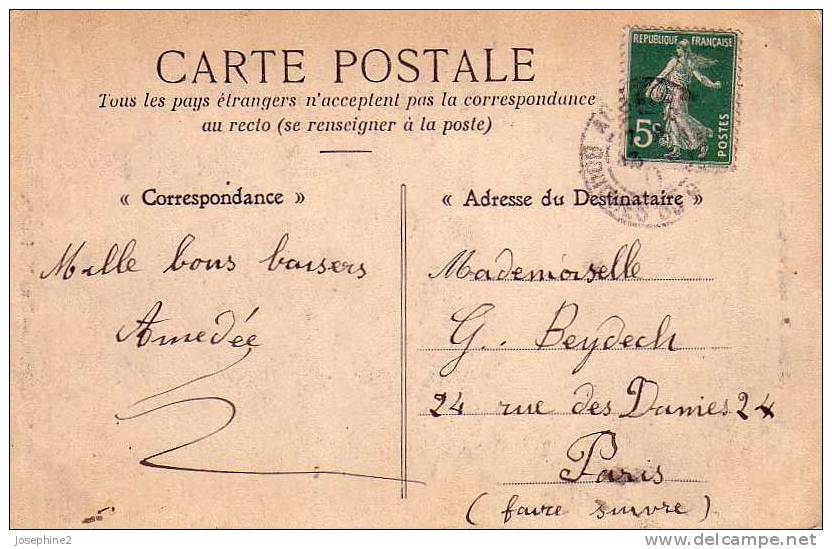 CARTE POSTALE
Tous les pays étrangers n'acceptent pas la correspondance
au recto (se renseigner à la poste)
REPUBLIQUE FRANÇAISE
5c
POSTES
« Correspondance »
Mille bons baisers
Amedée
« Adresse du Destinataire »
Mademoiselle
G. Beydech
24 rue des Dames 24
Paris
(faire suivre)
Josephine2
www.delcampe.net